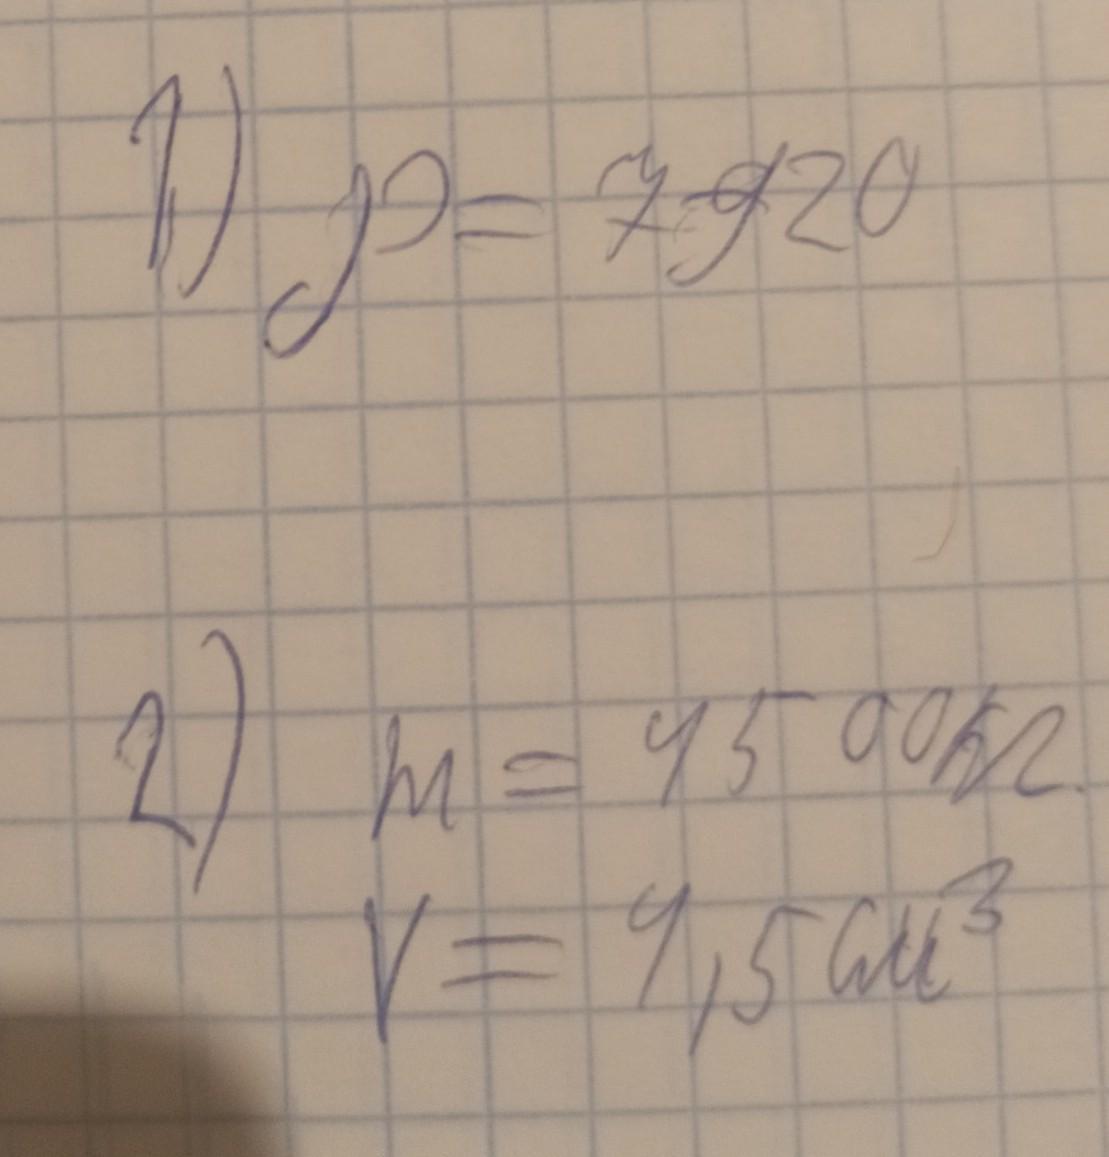 1) ρ = 7920
2) m = 4500кг.
V = 4,5 см³